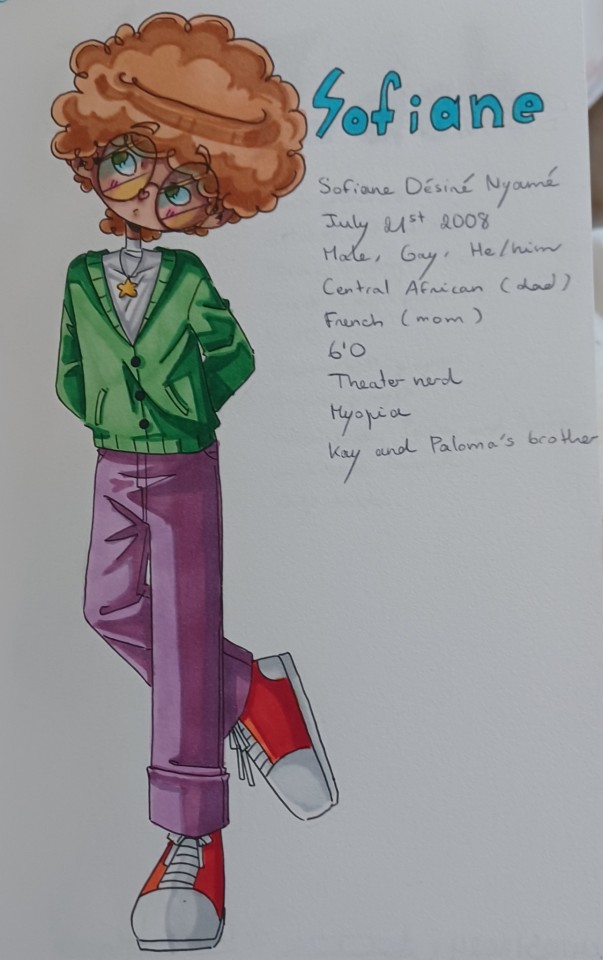 Sofiane
Sofiane Désiré Nyamé
July 21st 2008
Male, Gay, He/him
Central African (dad)
French (mom)
6'0
Theater nerd
Myopia
Kay and Paloma's brother